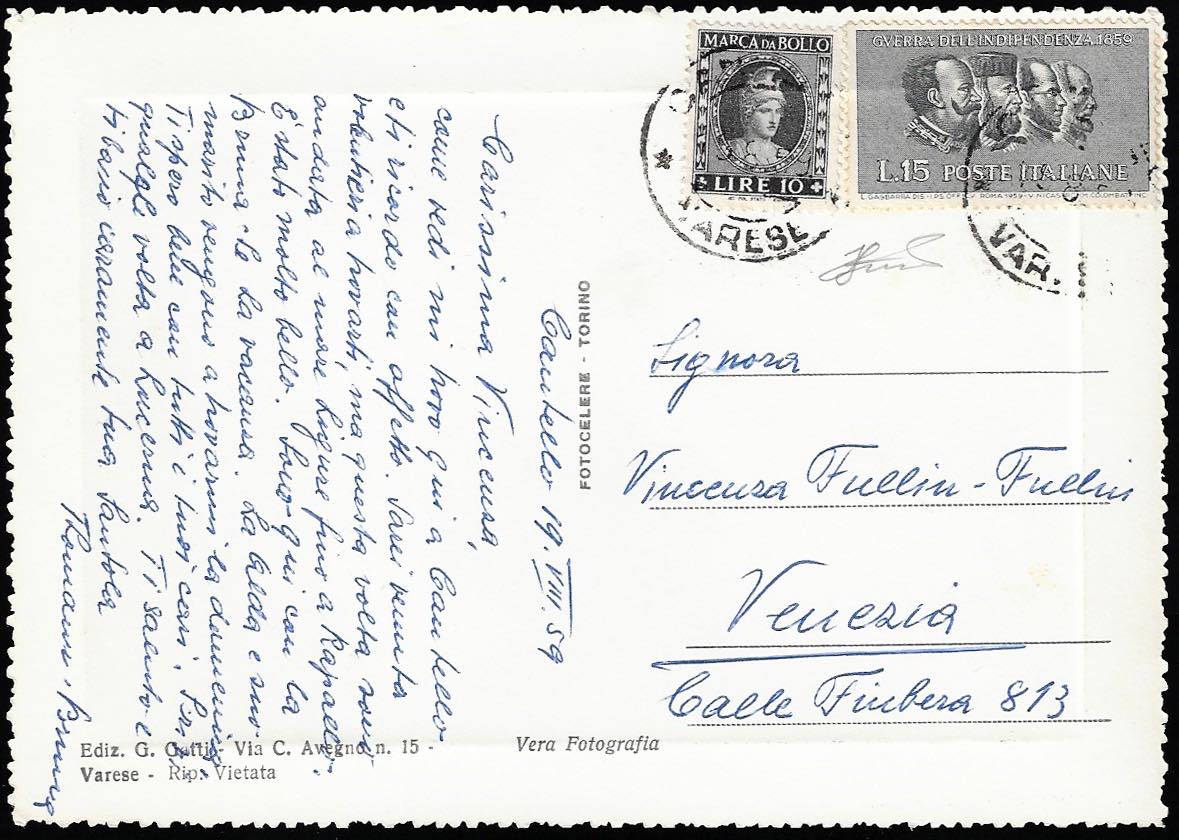 MARCA DA BOLLO
LIRE 10
GVERRA DELL'INDIPENDENZA 1859
L.15 POSTE ITALIANE
L. GASBARRA DIS. I.P.S. OFF. C.V. ROMA 1959
VARESE
VAR.
Cantello 19.VIII.59
Carissima Vincenza,
come vedi mi trovo qui a Cantello
e ti ricordo con affetto. Sarei venuta
volentieri a trovarti, ma questa volta sono
andata al mare Ligure fino a Rapallo.
È stato molto bello. Sono qui con la
Bruna le la vacanza. La Alda e suo
marito vengono a trovarmi la domenica
Ti spero bene con tutti i tuoi cari.
qualche volta a Lucerna. Ti saluto e
ti bacio caramente tua Santola
Bruna
FOTOCELERE - TORINO
Signora
Vincenza Fullin-Fullin
Venezia
Calle Fiubera 813
Ediz. G. Gatti - Via C. Avegno n. 15 -
Varese - Rip. Vietata
Vera Fotografia